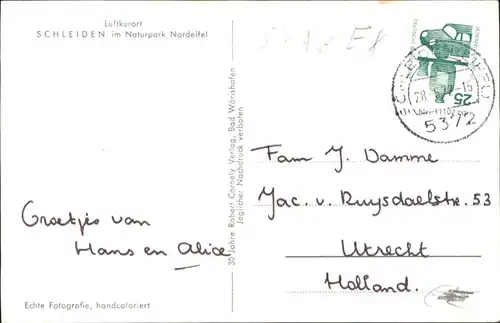 Luftkurort
SCHLEIDEN im Naturpark Nordeifel
Groetjes van
Hans en Alice
Echte Fotografie, handcoloriert
30 Jahre Robert Cornely Verlag, Bad Wörishofen
Jeglicher Nachdruck verboten
25
5372
Fam J. Damme
Jac. v. Ruysdaelstr. 53
Utrecht
Holland.